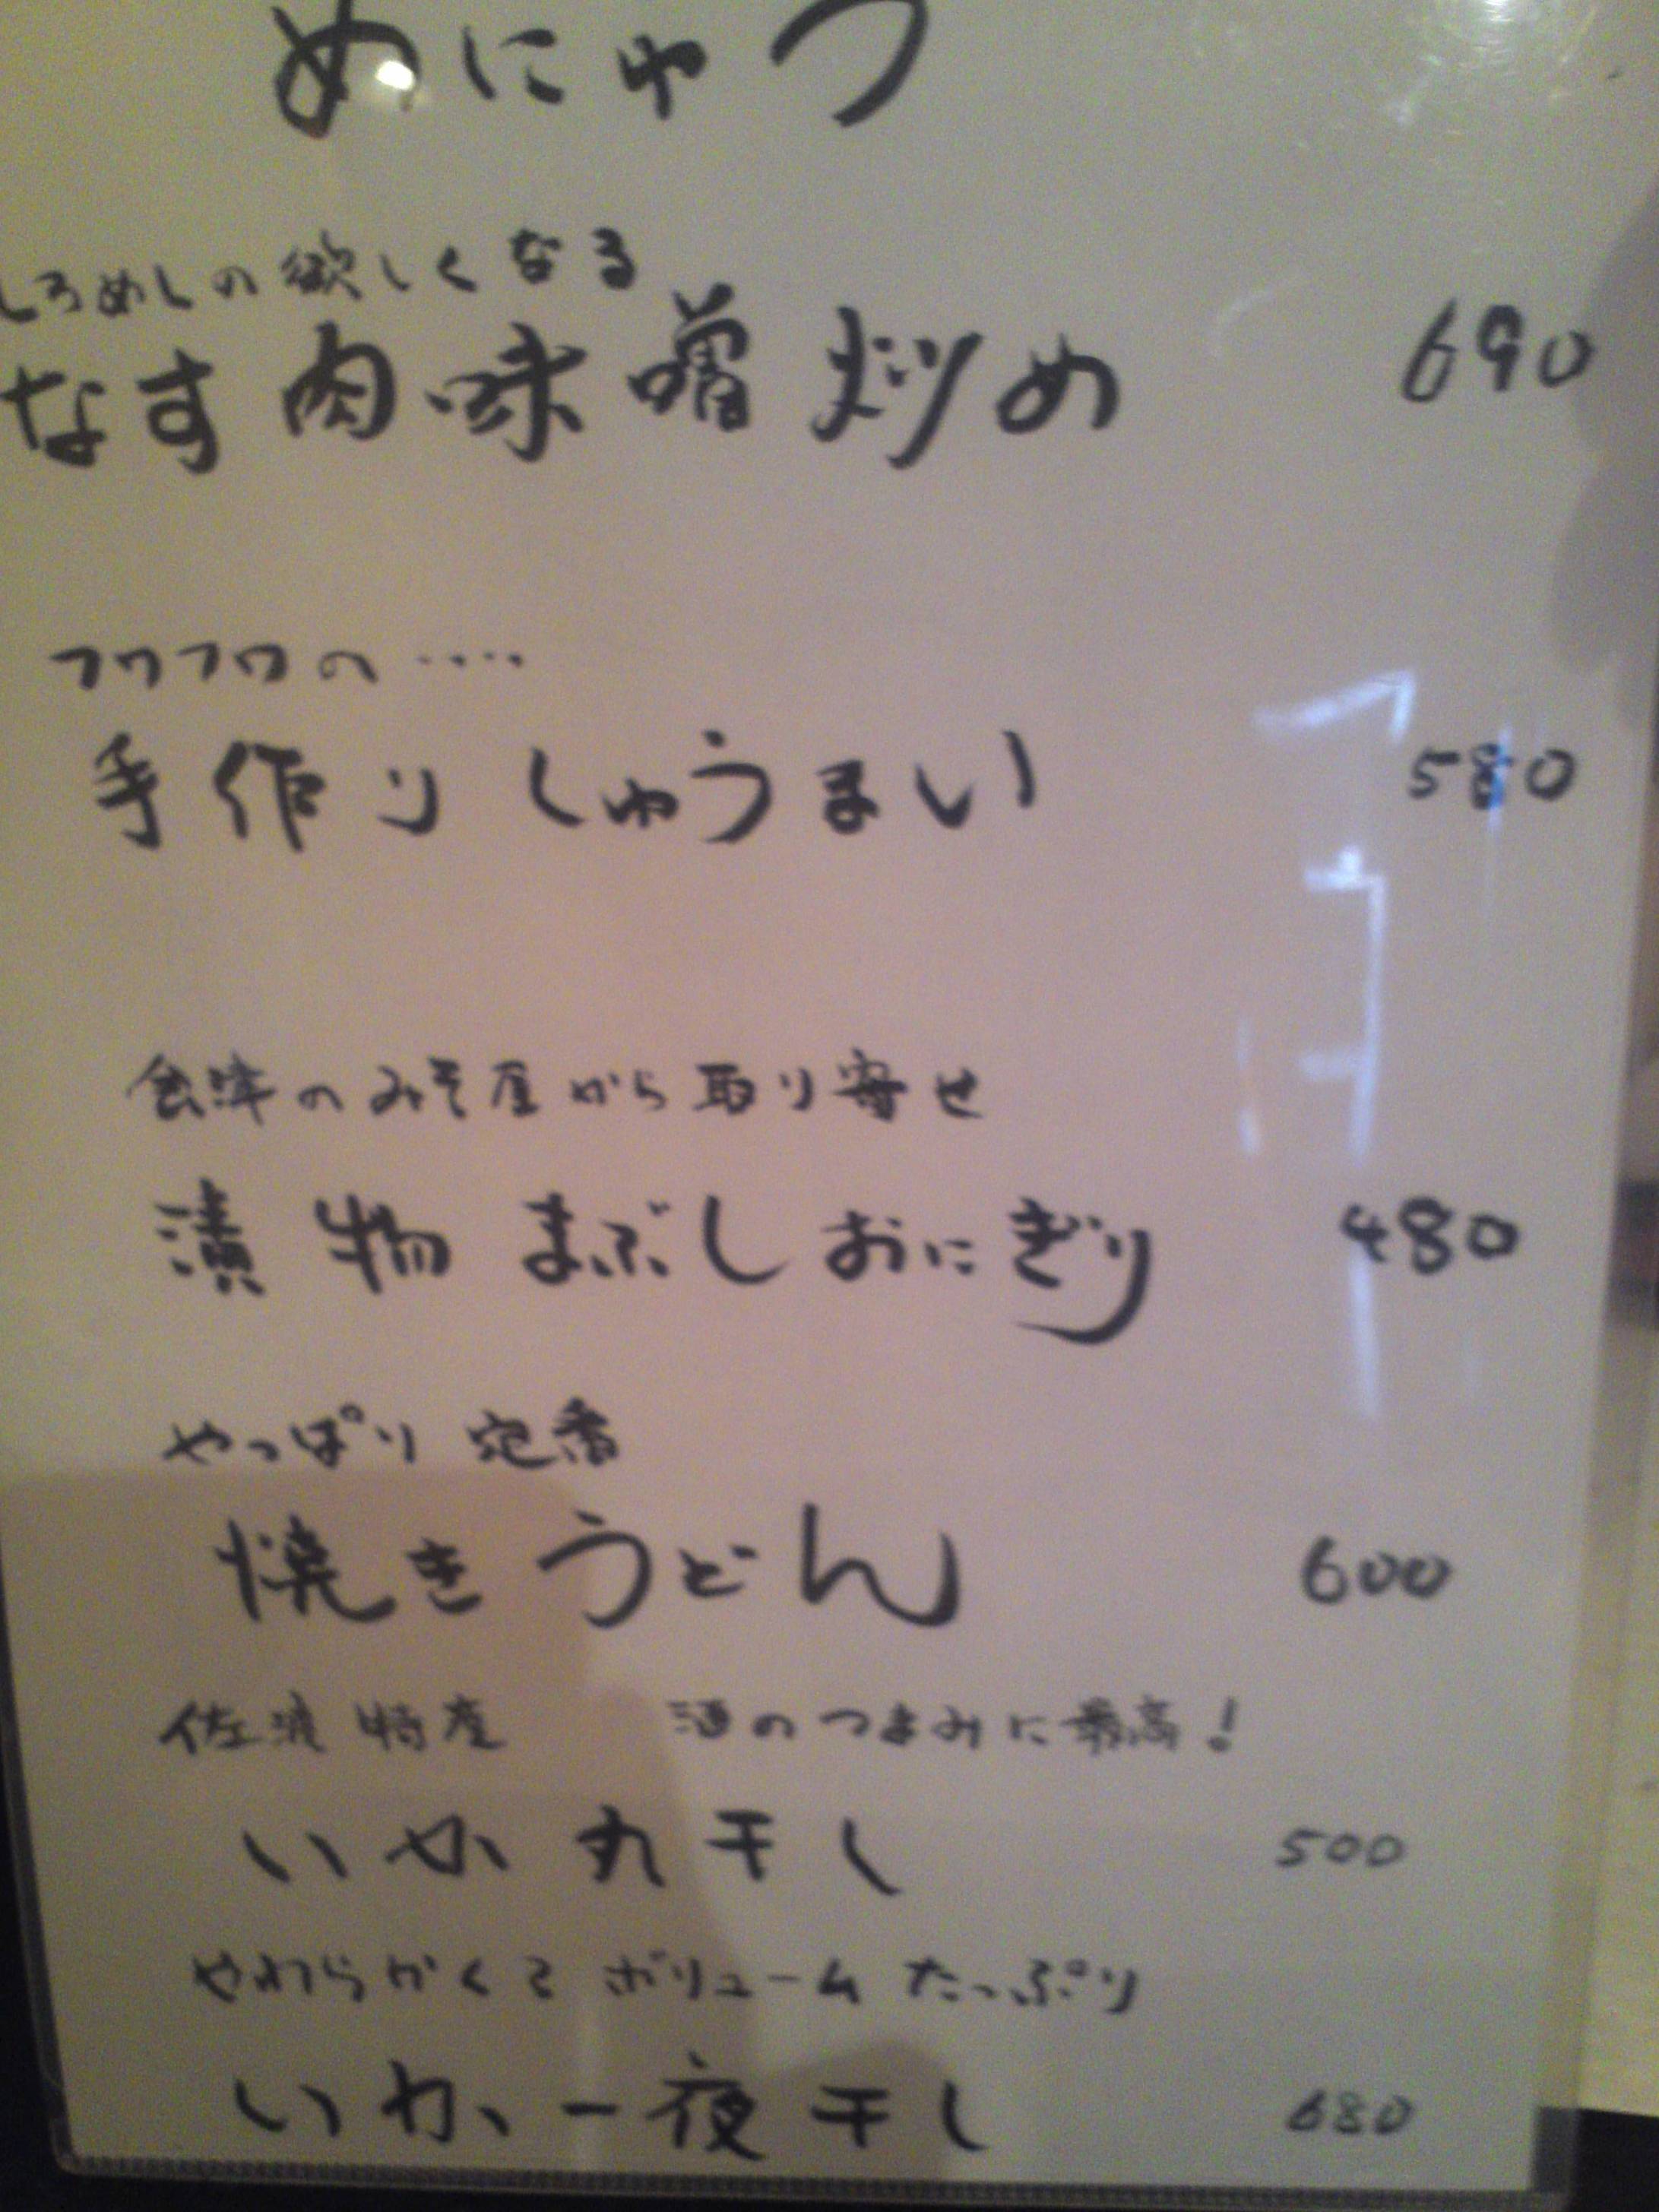 めにゅう
しろめしの欲しくなる
なす肉味噌炒め 690
フワフワの‥‥
手作りしゅうまい 580
会津のみそ屋から取り寄せ
漬物まぶしおにぎり 480
やっぱり定番
焼きうどん 600
佐渡特産 酒のつまみに最高!
いか丸干し 500
やわらかくてボリュームたっぷり
いか一夜干し 680